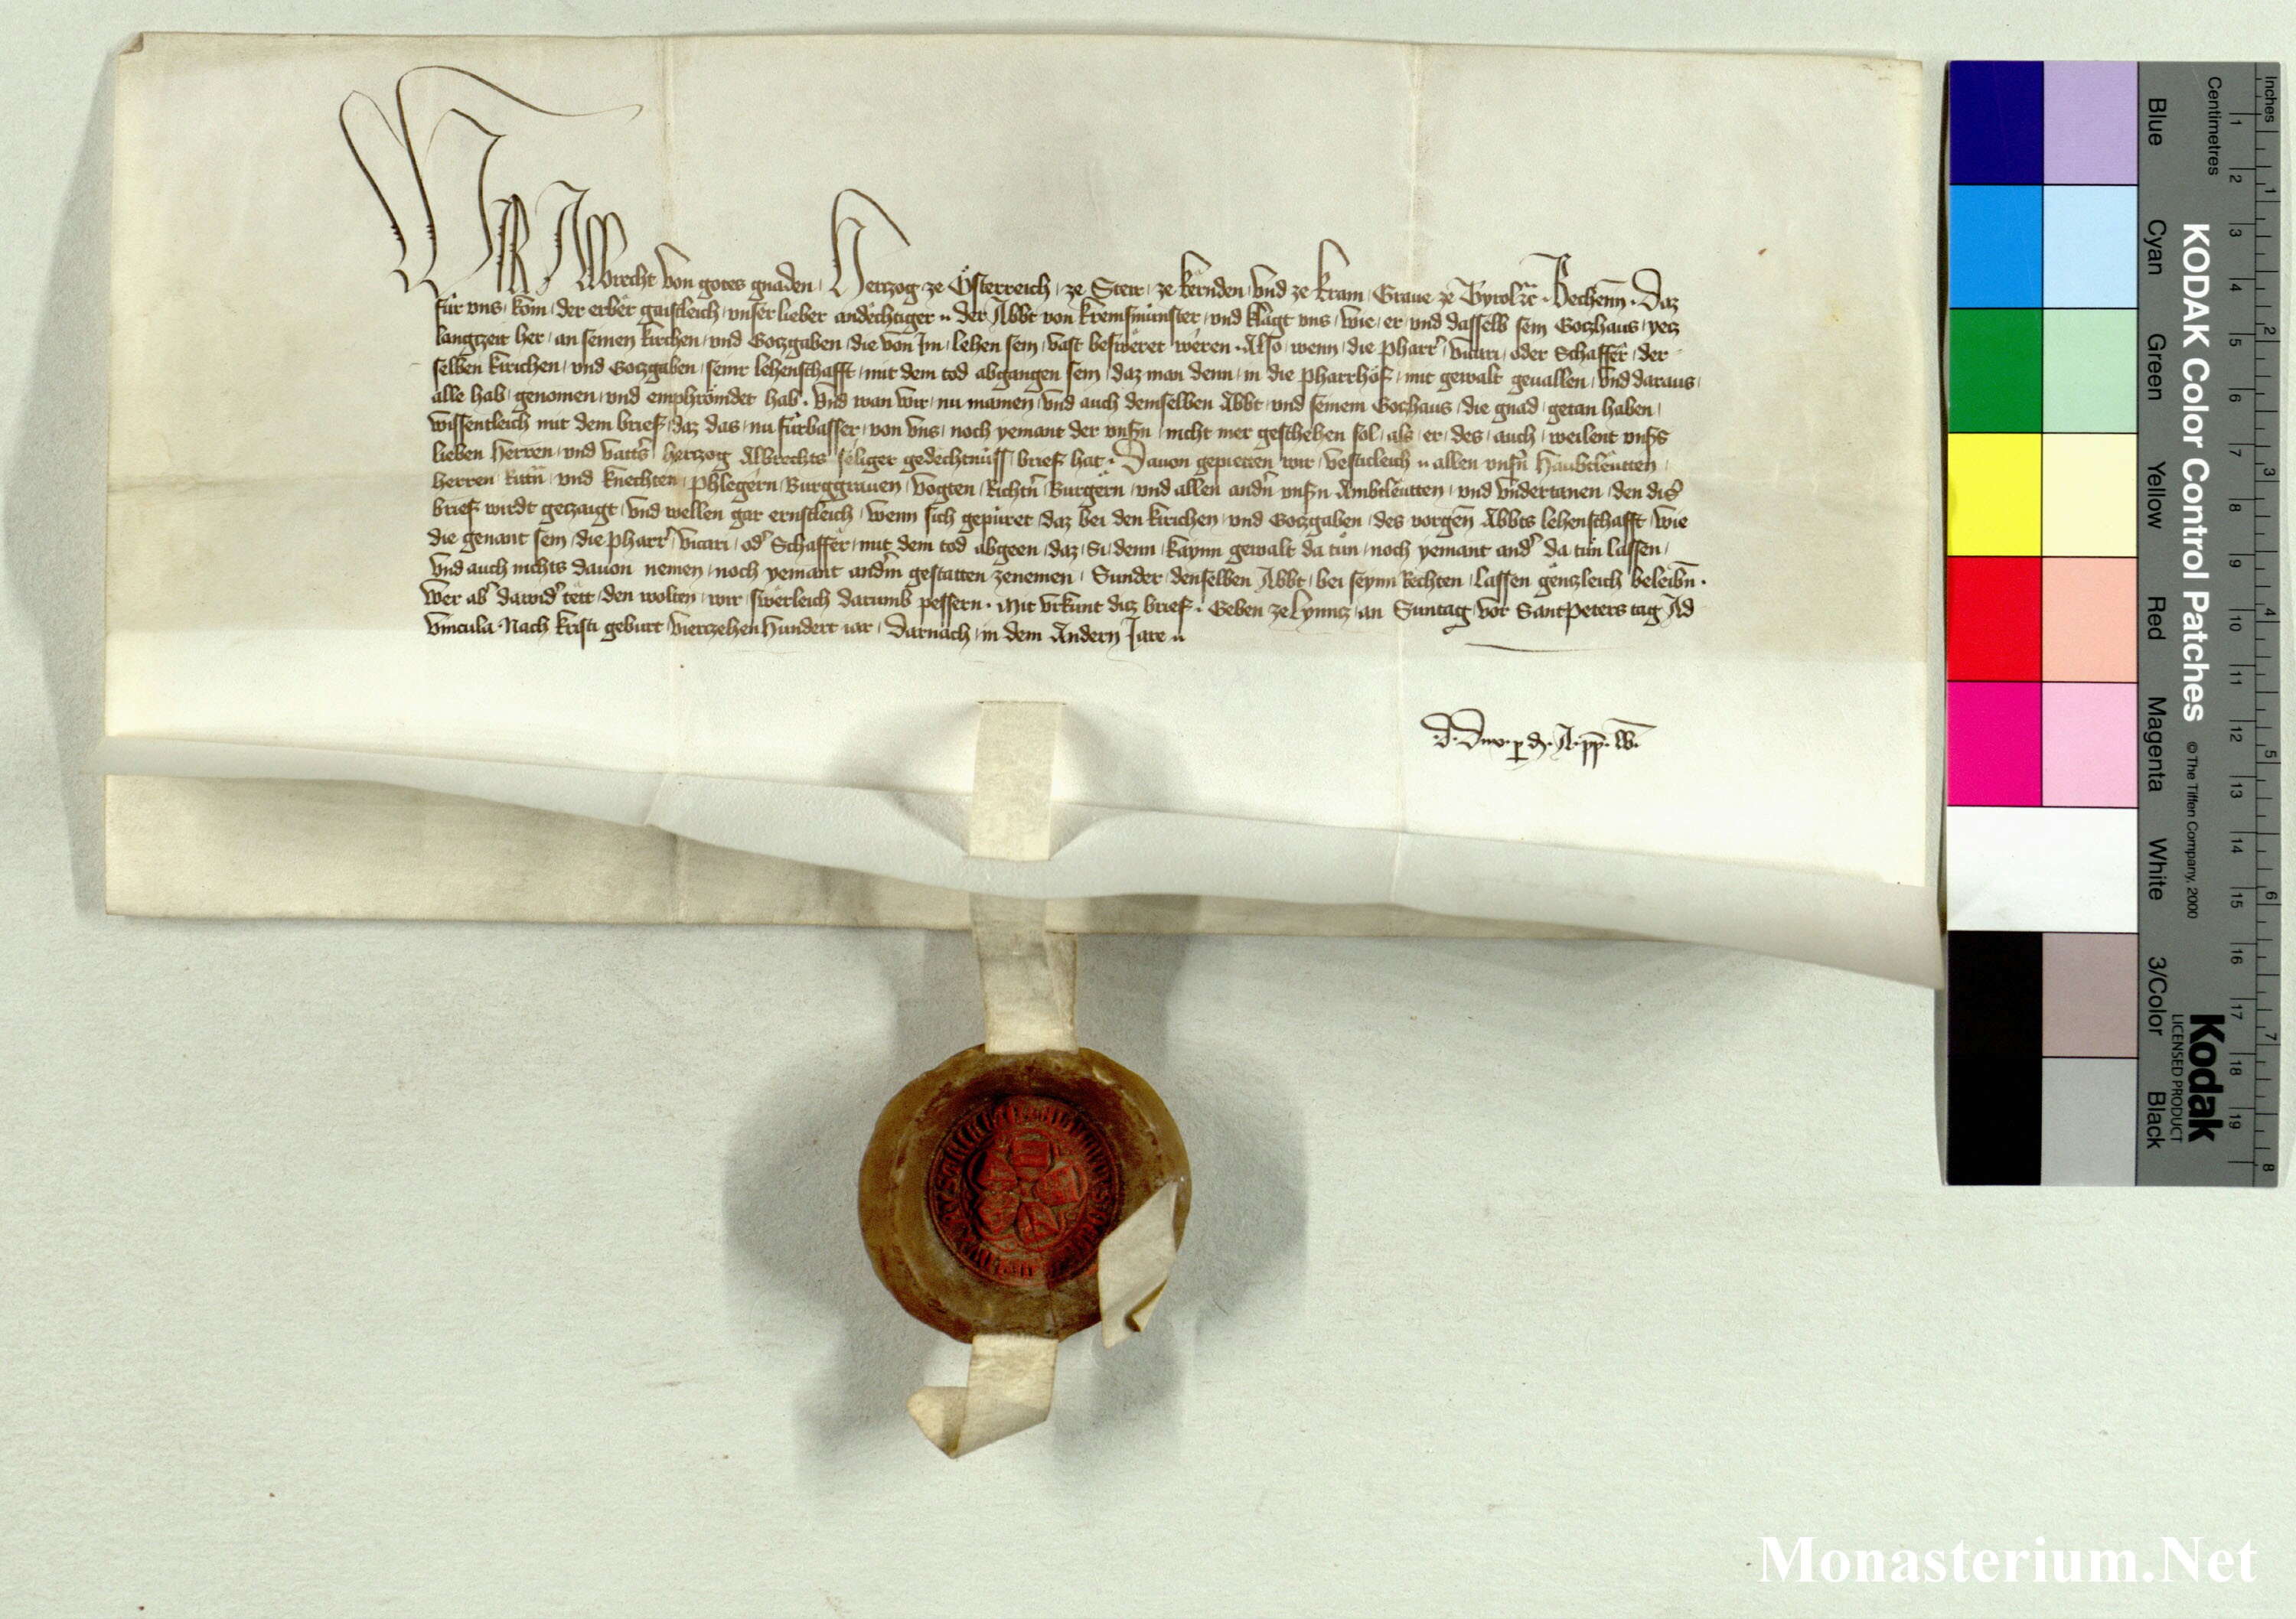 WIR Albrecht von gotes gnaden, Herczog ze Österreich, ze Steir, ze kernden, vnd ze krain, Graue ze Tyrol ꝛc̄. Bechenn̄. Daz
für vns, kom, der erber gaistleich, vnser lieber andechtiger .. der Abbt von kremsmünster, vnd klagt vns, wie, er, vnd dasselb sein Goczhaus, yecz
langzeit her, an seinen kirchen, vnd Goczgaben, die von Im, lehen sein, vast besweret weren. Also, wenn, die pharr̾, vicari, oder Schaffer, der
selben kirichen, vnd Goczgaben, seinr lehenschafft, mit dem tod abgangen sein, daz man denn, in die pharrhöf, mit gewalt geuallen, vnd daraus,
alle hab, genomen, vnd emphrömdet hab. Vnd wan wir, nu mainen, vnd auch demselben Abbt, vnd seinem Goczhaus, die gnad, getan haben,
wissentleich mit dem brief, daz das, nu fürbasser, von vns, noch yemant der vnsn̾, nicht mer geschehen sol, als, er, des, auch, weilent vnss̾
lieben Herren, vnd vatt̾s herczog Albrechts seliger gedechtnüss, brief hat. Dauon gepieten wir, vesticleich .. allen vnsn̾ Haubtleutten,
herren, Ritt̾n, vnd knechten, phlegern, Burggrauen, vogten, Richt̾n, Burgern, vnd allen and̾n vnsn̾ Ambtleutten, vnd vndertanen, den dis̾
brief wirdt geczaigt, vnd wellen gar ernstleich, wenn sich gepüret, daz bei den kirichen, vnd Goczgaben, des vorgen̄ Abbts lehenschafft, wie
die genant sein, die pharr̾, vicari, od̾ Schaffer, mit dem tod abgeen, daz, Si, denn, kaynn gewalt da tün, noch yemant and̾ da tün lassen,
vnd auch nichts dauon nemen, noch yemant and̾m gestatten zenemen, Sunder, denselben Abbt, bei seynn Rechten, lassen genczleich beleibn̄.
Wer ab̾ dawid̾ tett, den wolten, wir, swerleich darumb pessern. Mit vrkunt dicz brief. Geben ze Lynncz, an Suntag, vor Sant Peters tag Ad
vincula. Nach kristi geburt, vierczehenhundert iar, Darnach, in dem Andern Iare ..
.d. Dux. ꝑ d. A. pp̄. W.
Inches
Centimetres
1 2 3 4 5 6 7 8 9 10 11 12 13 14 15 16 17 18 19
1 2 3 4 5 6 7 8
KODAK Color Control Patches © The Tiffen Company, 2000
Kodak
LICENSED PRODUCT
Blue Cyan Green Yellow Red Magenta White 3/Color Black
Monasterium.Net